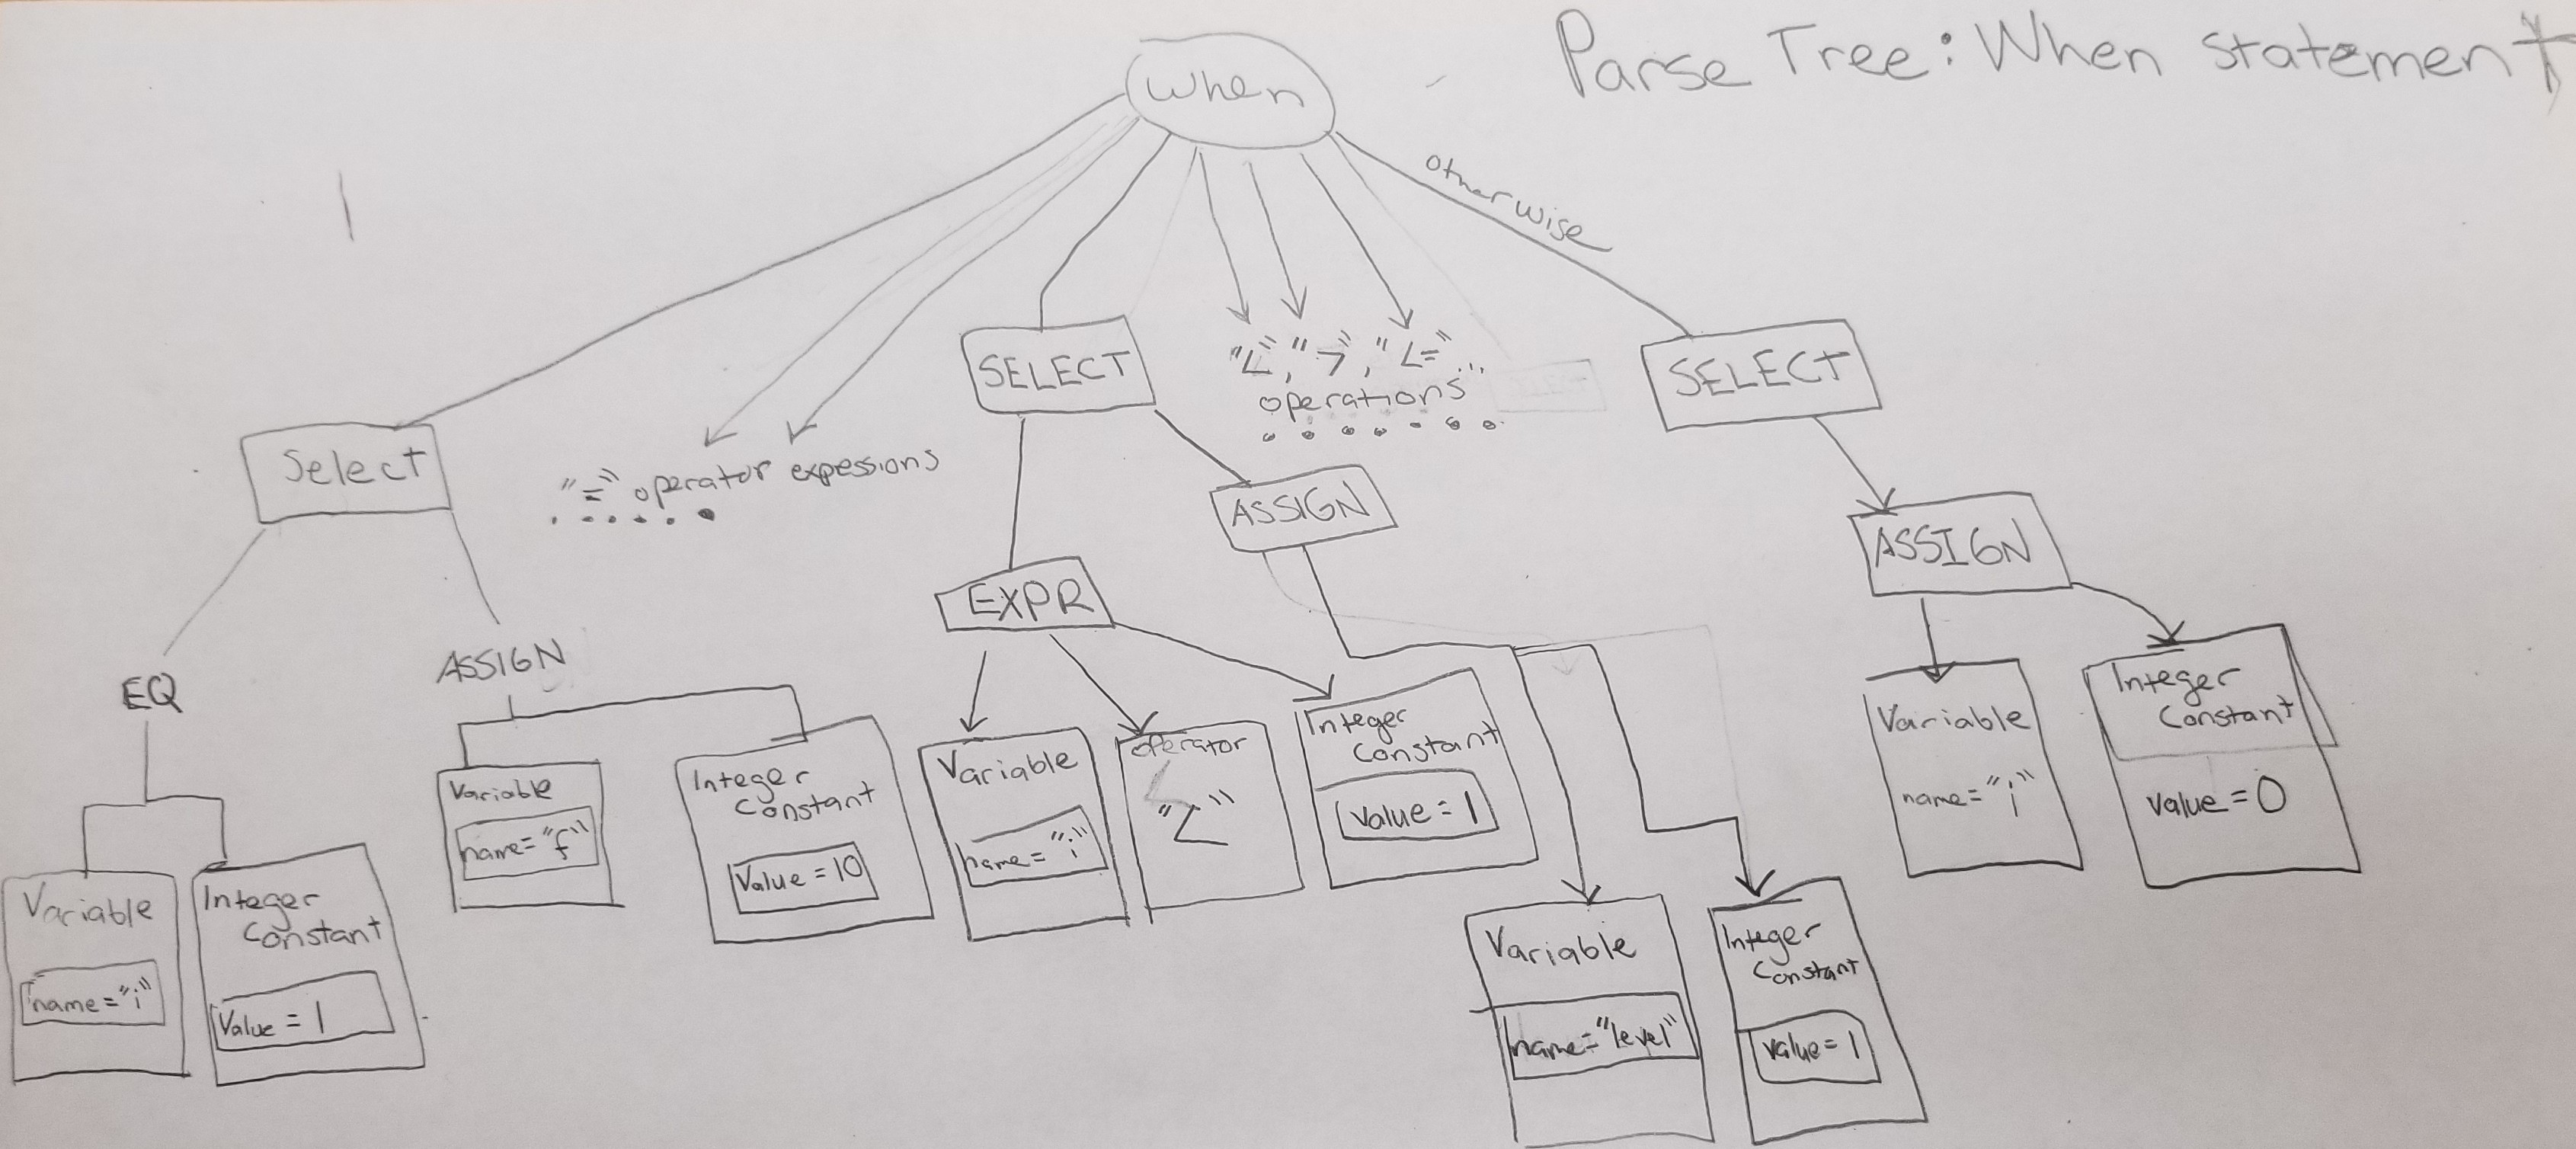 Parse Tree: When statement
When
otherwise
SELECT
"<", ">", "<="...
operations
SELECT
Select
"=" operator expessions
ASSIGN
ASSIGN
EXPR
EQ
ASSIGN
Variable
name="i"
Integer
Constant
Value = 1
Variable
name="f"
Integer
Constant
Value = 10
Variable
name="i"
operator
"<"
Integer
Constant
Value = 1
Variable
name="level"
Integer
Constant
value = 1
Variable
name="i"
Integer
Constant
value = 0